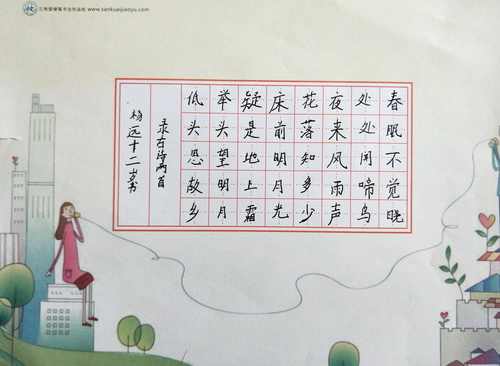 硬笔书法作品纸 www.sankuaijiaoyu.com
春眠不觉晓
处处闻啼鸟
夜来风雨声
花落知多少
床前明月光
疑是地上霜
举头望明月
低头思故乡
录古诗两首
杨远十二岁书